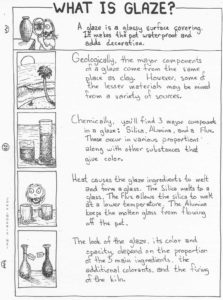 WHAT IS GLAZE?
A glaze is a glassy surface covering.
It makes the pot waterproof and
adds decoration.
Geologically, the major components
of a glaze come from the same
place as clay. However, some of
the lesser materials may be mined
from a variety of sources.
Chemically, you'll find 3 major compounds
in a glaze: Silica, Alumina, and a Flux.
These occur in various proportions
along with other substances that
give color.
Heat causes the glaze ingredients to melt
and form a glass. The Silica melts to a
glass. The Flux allows the silica to melt
at a lower temperature. The Alumina
keeps the molten glass from flowing
off the pot.
The look of the glaze, its color and
opacity, depend on the proportion
of the 3 main ingredients, the
additional colorants, and the firing
of the kiln.